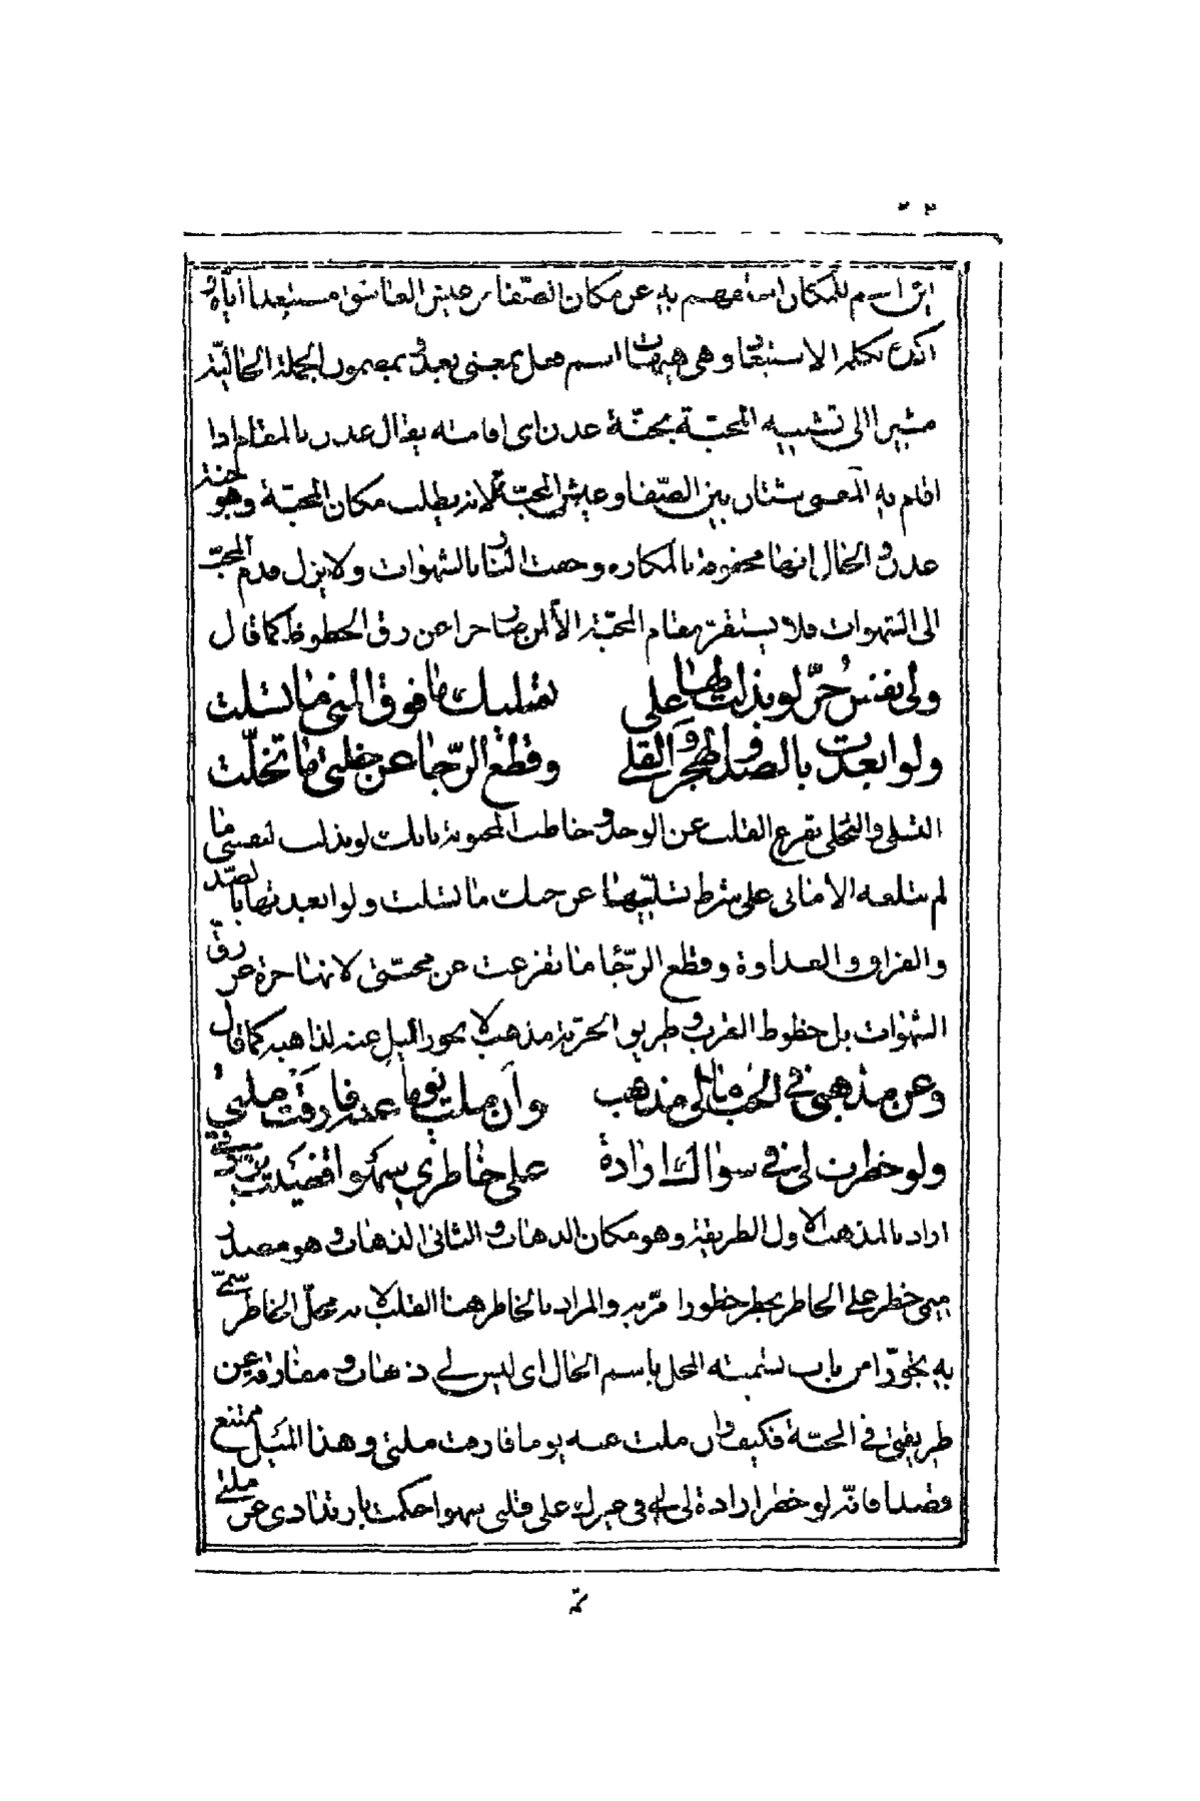 اين اسم للمكان استفهم به عن مكان الصفا من عيش العاشق مستبعدا اياه
بكلمة الاستبعاد وهي هيهات اسم فعل بمعنى بعد الجملة الحالية
مشيرا الى تشبيه المحبة بجنة عدن اى اقامته يقال عدن بالمقام اذا
اقام به المعنى شتان بين الصفا وعيش المحب لانه يطلب مكان المحبة وهو جنة
عدن والحال انها محفوفة بالمكاره وحفت النار بالشهوات ولا يزل قدم المحب
الى الشهوات فلا يستقر بمقام المحبة الا لمن صار حرا عن رق الحظوظ كما قال
ولى نفس حرّ لو بذلت لها على تسليك ما فوق المنى ما تسلت
ولو ابعدت بالصد والهجر والقلى وقطع الرجا عن خلتى ما تخلت
التسلى والتخلى تفرغ القلب عن الوجد وخاطب المحبوبة بانك لو بذلت لنفسى ما
لم تبلغه الامانى على شرط تسليها عن حبك ما تسلت ولو ابعدتها بالصد
والفراق والعداوة وقطع الرجا ما تفرغت عن محبتى لانها حرة عن رق
الشهوات بل حظوظ القرب وطريق الحرية مذهب لا يجوز الميل عنه لذاهبه كما قال
وعن مذهبى فى الحب ما لى مذهب وان ملت يوما عنه فارقت ملتى
ولو خطرت لى فى سواك ارادة على خاطرى سهوا قضيت بردتى
اراد بالمذهب الاول الطريقة وهو مكان الذهاب والثانى الذهاب وهو مصدر
ميمى خطر على الخاطر يخطر خطورا مرّ به والمراد بالخاطر هنا القلب لانه محل الخاطر سمى
به تجوزا من باب تسمية المحل باسم الحال اى ليس لى ذهاب ومفارقة عن
طريقتى فى المحبة فكيف وان ملت عنه يوما فارقت ملتى وهذا الميل ممتنع
قصدا فانه لو خطر ارادة لى فى غيرك على قلبى سهوا حكمت بارتدادى عن ملتى